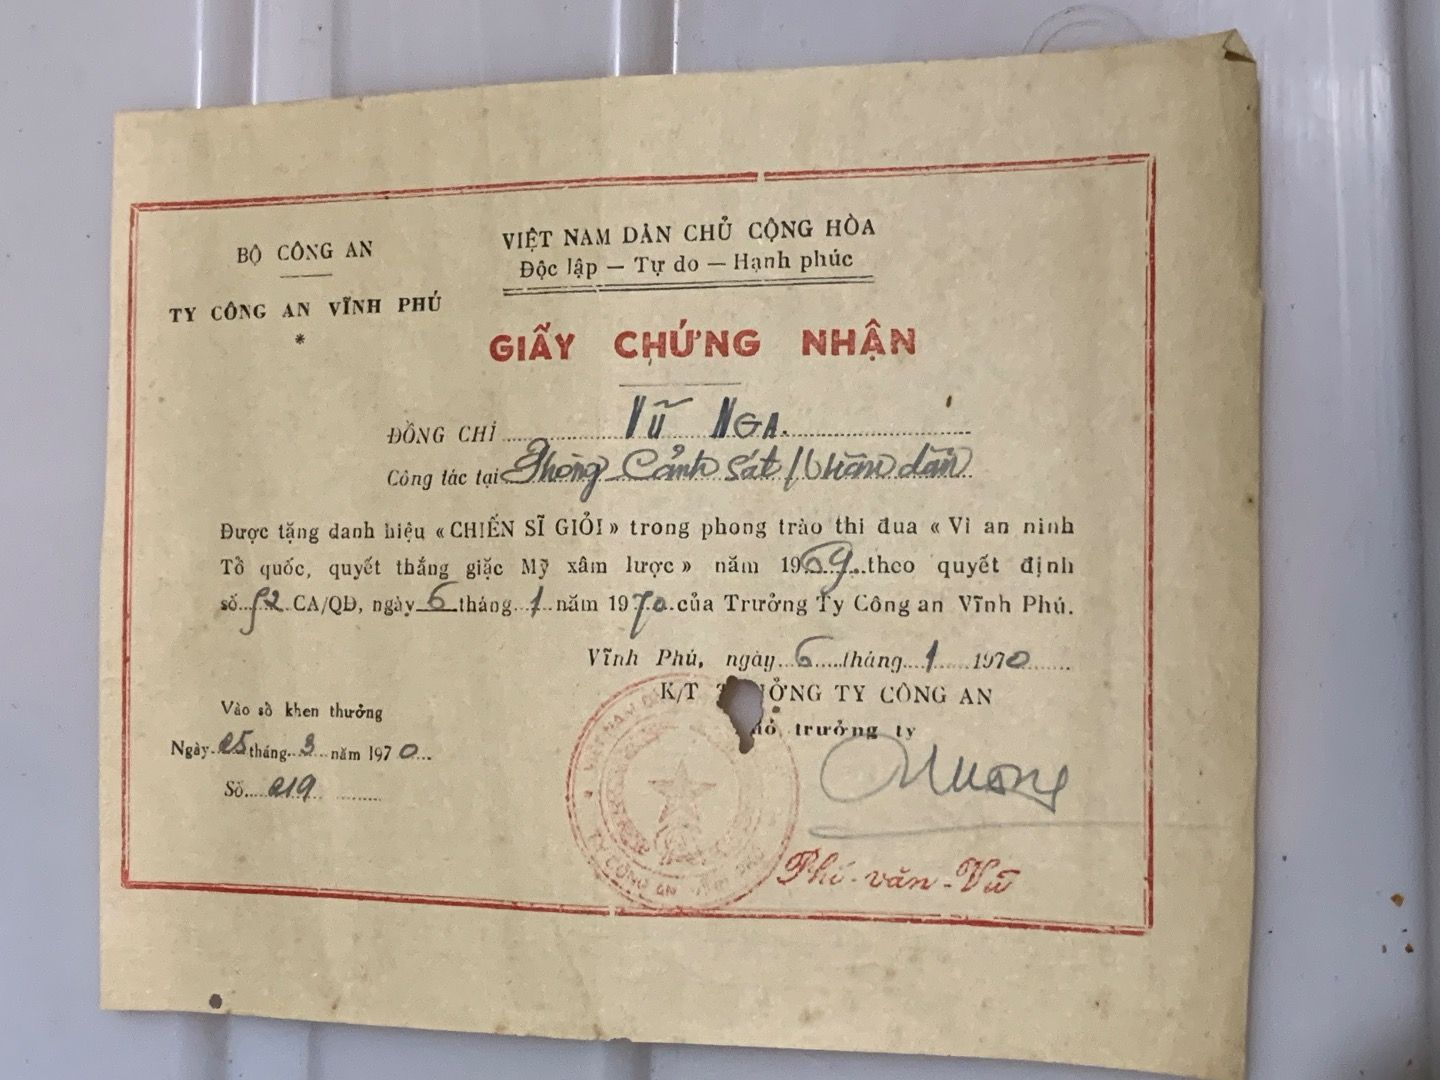 BỘ CÔNG AN
TY CÔNG AN VĨNH PHÚ
*
VIỆT NAM DÂN CHỦ CỘNG HÒA
Độc lập — Tự do — Hạnh phúc
GIẤY CHỨNG NHẬN
ĐỒNG CHÍ VŨ NGA.
Công tác tại Phòng Cảnh sát Nhân dân
Được tặng danh hiệu «CHIẾN SĨ GIỎI» trong phong trào thi đua «Vì an ninh
Tổ quốc, quyết thắng giặc Mỹ xâm lược» năm 1969 theo quyết định
số 52 CA/QĐ, ngày 6 tháng 1 năm 1970 của Trưởng Ty Công an Vĩnh Phú.
Vĩnh Phú, ngày 6 tháng 1 1970
K/T TRƯỞNG TY CÔNG AN
Phó trưởng ty
Vào sổ khen thưởng
Ngày 25 tháng 3 năm 1970
Số 219
VIỆT NAM
TY CÔNG AN VĨNH PHÚ
Phí-văn-Vũ